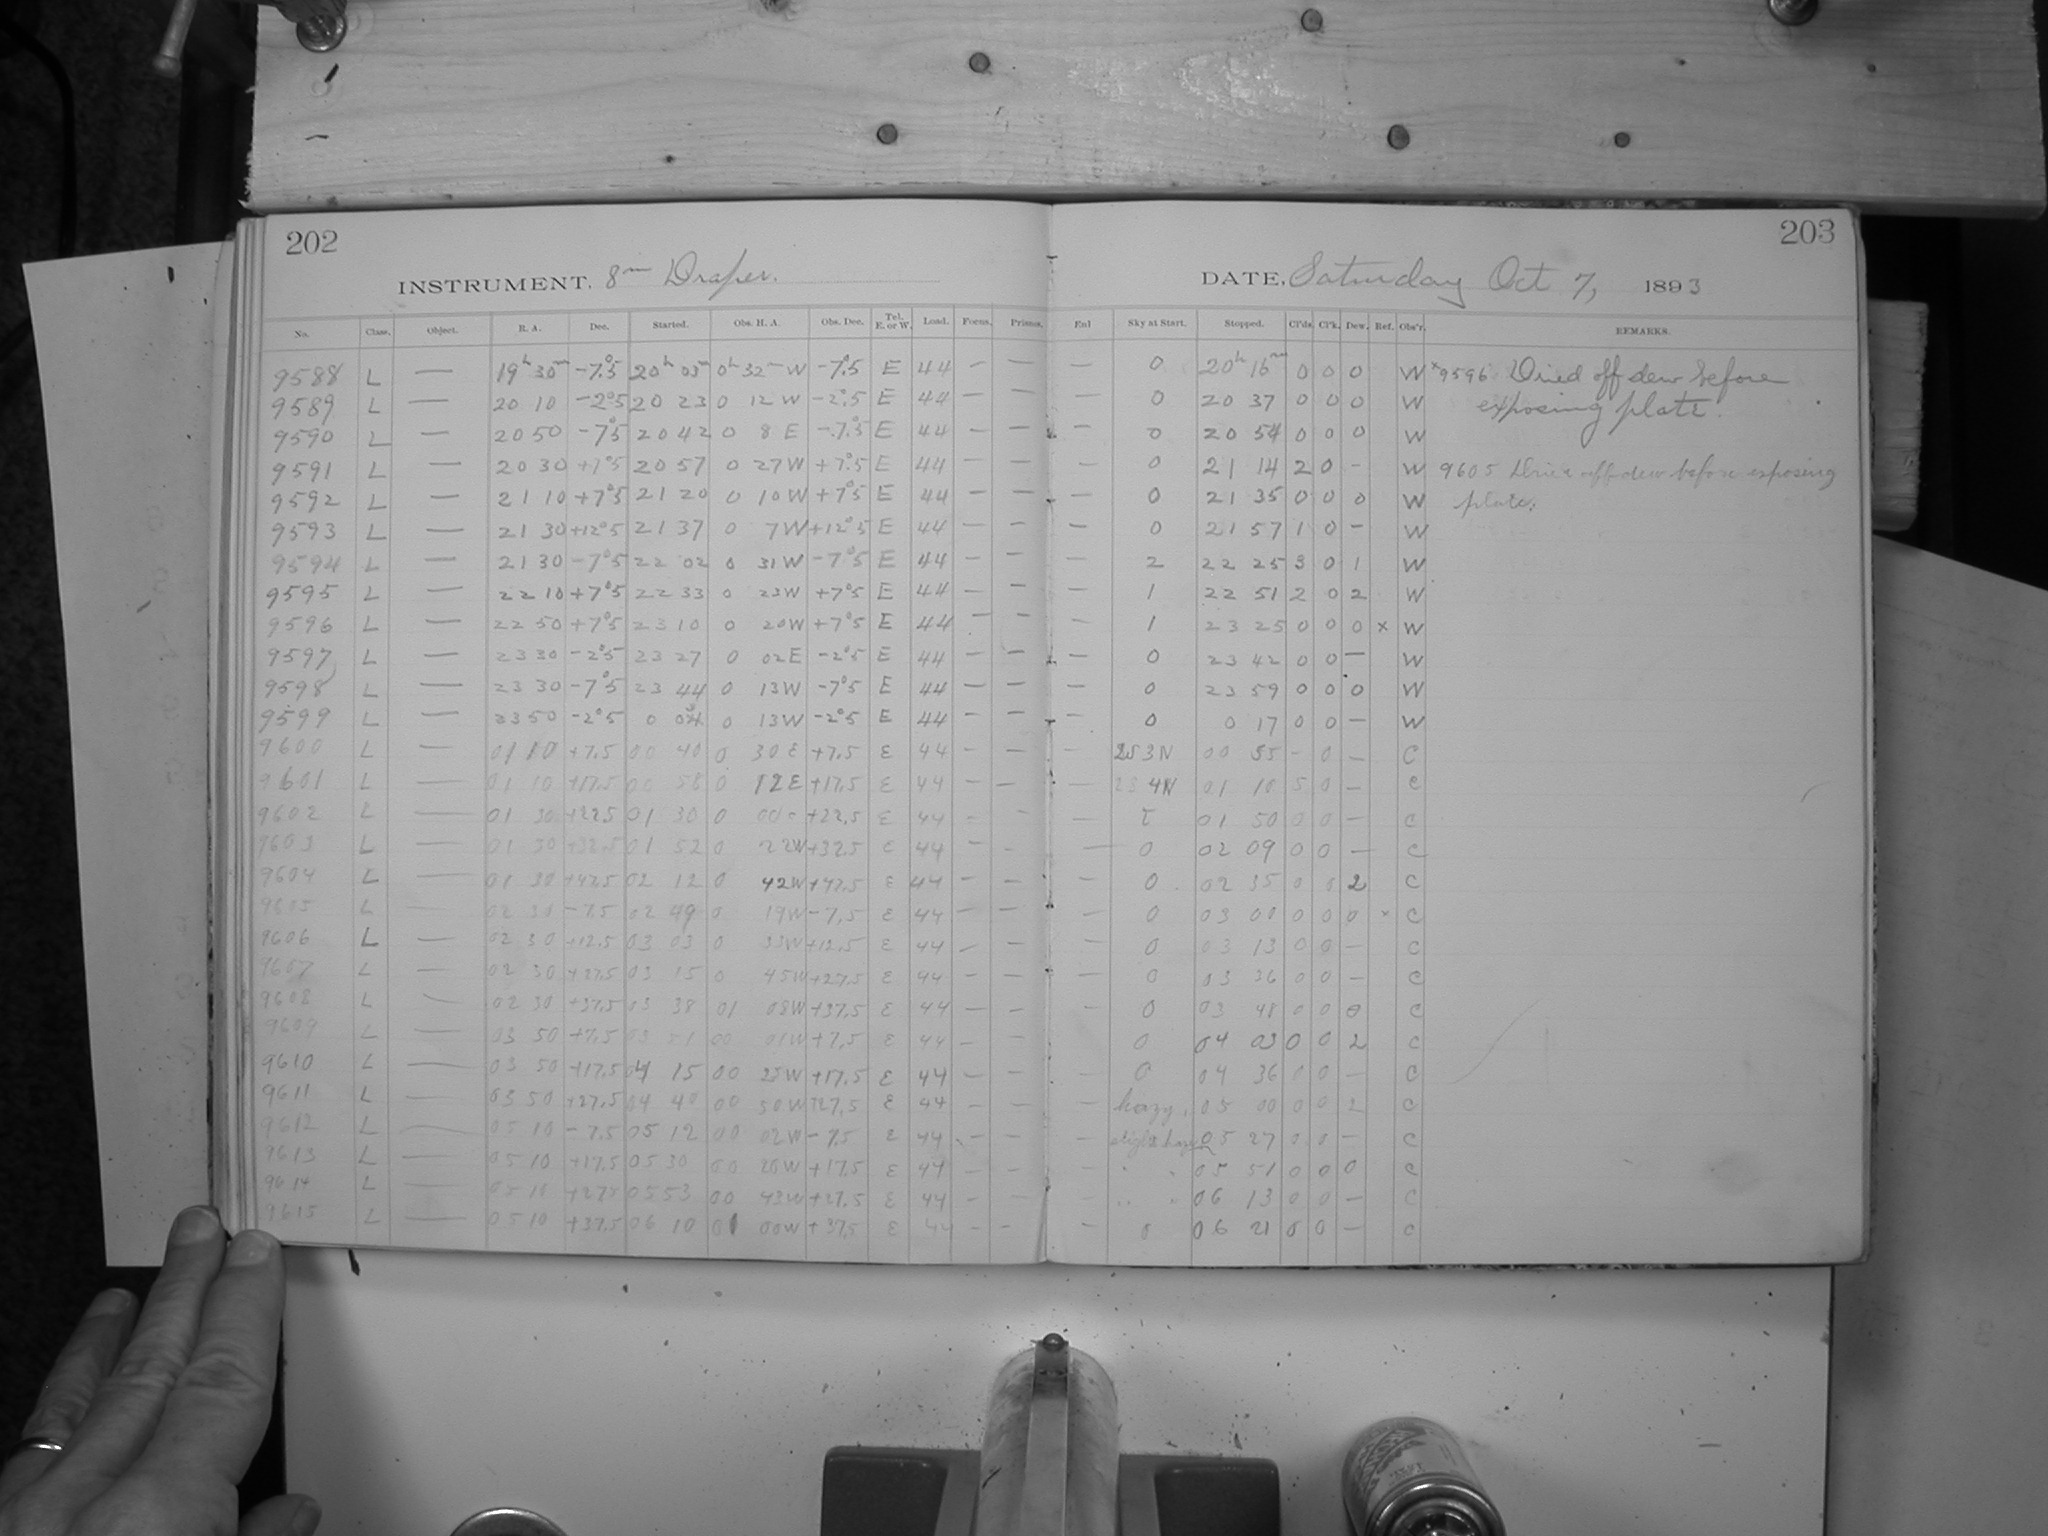 202
INSTRUMENT, 8 in Draper.
No. Class. Object. R. A. Dec. Started. Obs. H. A. Obs. Dec. Tel. E. or W. Load. Focus. Prisms.
9588 L — 19h 30m -7°.5 20h 03m 0h 32m W -7.5 E 44 — —
9589 L — 20 10 -2°5 20 23 0 12 W -2°.5 E 44 — —
9590 L — 20 50 -7°5 20 42 0 8 E -7.°5 E 44 — —
9591 L — 20 30 +7°5 20 57 0 27 W +7°.5 E 44 — —
9592 L — 21 10 +7°5 21 20 0 10 W +7°5 E 44 — —
9593 L — 21 30 +12°5 21 37 0 7 W +12°5 E 44 — —
9594 L — 21 30 -7°5 22 02 0 31 W -7°5 E 44 — —
9595 L — 22 10 +7°5 22 33 0 23 W +7°5 E 44 — —
9596 L — 22 50 +7°5 23 10 0 20 W +7°5 E 44 — —
9597 L — 23 30 -2°5 23 27 0 02 E -2°5 E 44 — —
9598 L — 23 30 -7°5 23 44 0 13 W -7°5 E 44 — —
9599 L — 23 50 -2°5 0 03 0 13 W -2°5 E 44 — —
9600 L — 01 10 +7.5 00 40 0 30 E +7.5 E 44 — —
9601 L — 01 10 +17.5 00 58 0 12 E +17.5 E 44 — —
9602 L — 01 30 +22.5 01 30 0 00 +22.5 E 44 — —
9603 L — 01 30 +32.5 01 52 0 22 W +32.5 E 44 — —
9604 L — 01 30 +42.5 02 12 0 42 W +42.5 E 44 — —
9605 L — 02 30 -7.5 02 49 0 19 W -7.5 E 44 — —
9606 L — 02 30 +12.5 03 03 0 33 W +12.5 E 44 — —
9607 L — 02 30 +27.5 03 15 0 45 W +27.5 E 44 — —
9608 L — 02 30 +37.5 03 38 01 08 W +37.5 E 44 — —
9609 L — 03 50 +7.5 03 51 00 01 W +7.5 E 44 — —
9610 L — 03 50 +17.5 04 15 00 25 W +17.5 E 44 — —
9611 L — 03 50 +27.5 04 40 00 50 W +27.5 E 44 — —
9612 L — 05 10 -7.5 05 12 00 02 W -7.5 E 44 — —
9613 L — 05 10 +17.5 05 30 00 20 W +17.5 E 44 — —
9614 L — 05 10 +27.5 05 53 00 43 W +27.5 E 44 — —
9615 L — 05 10 +37.5 06 10 01 00 W +37.5 E 44 — —
203
DATE, Saturday Oct 7, 1893
Enl Sky at Start. Stopped. Cl'ds Cl'k. Dew. Ref. Obs'r. REMARKS.
— 0 20h 16m 0 0 0 W ×9596 Dried off dew before
— 0 20 37 0 0 0 W exposing plate.
— 0 20 54 0 0 0 W
— 0 21 14 2 0 — W 9605 Dried off dew before exposing
— 0 21 35 0 0 0 W plate.
— 0 21 57 1 0 — W
— 2 22 25 3 0 1 W
— 1 22 51 2 0 2 W
— 1 23 25 0 0 0 × W
— 0 23 42 0 0 — W
— 0 23 59 0 0 0 W
— 0 0 17 0 0 — W
— 2S 3N 00 55 — 0 — C
— 2S 4N 01 10 5 0 — C
— 01 50 0 0 — C
— 0 02 09 0 0 — C
— 0 02 35 0 0 2 C
— 0 03 00 0 0 0 × C
— 0 03 13 0 0 — C
— 0 03 36 0 0 — C
— 0 03 48 0 0 0 C
— 0 04 03 0 0 2 C
— 0 04 36 0 0 — C
— hazy, 05 00 0 0 2 C
— slight hazy 05 27 0 0 — C
— " " 05 51 0 0 0 C
— " " 06 13 0 0 — C
— 0 06 21 0 0 — C